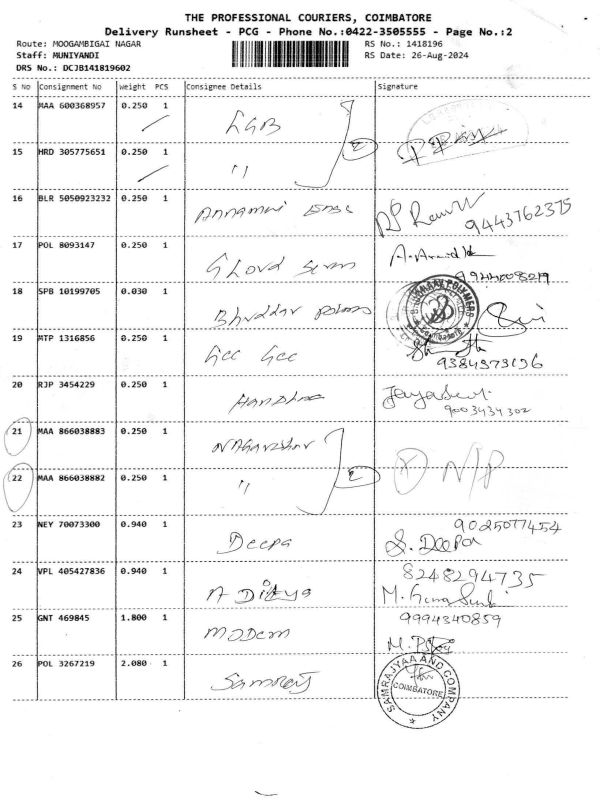 THE PROFESSIONAL COURIERS, COIMBATORE
Delivery Runsheet - PCG - Phone No.:0422-3505555 - Page No.:2
Route: MOOGAMBIGAI NAGAR RS No.: 1418196
Staff: MUNIYANDI RS Date: 26-Aug-2024
DRS No.: DCJB141819602
S No Consignment No Weight PCS Consignee Details Signature
14 MAA 600368957 0.250 1 LGB
15 HRD 305775651 0.250 1 " 2
16 BLR 5050923232 0.250 1
9443762375
17 POL 8093147 0.250 1
18 SPB 10199705 0.030 1
19 MTP 1316856 0.250 1 GCC GCC
9384373196
20 RJP 3454229 0.250 1
9003434302
21 MAA 866038883 0.250 1
22 MAA 866038882 0.250 1 " 2 N/P
23 NEY 70073300 0.940 1 Deepa 9025077454
S. Deepa
24 VPL 405427836 0.940 1 8248294735
25 GNT 469845 1.800 1 Modern 9994340859
26 POL 3267219 2.080 1
SAMRAJYAA AND COMPANY
COIMBATORE